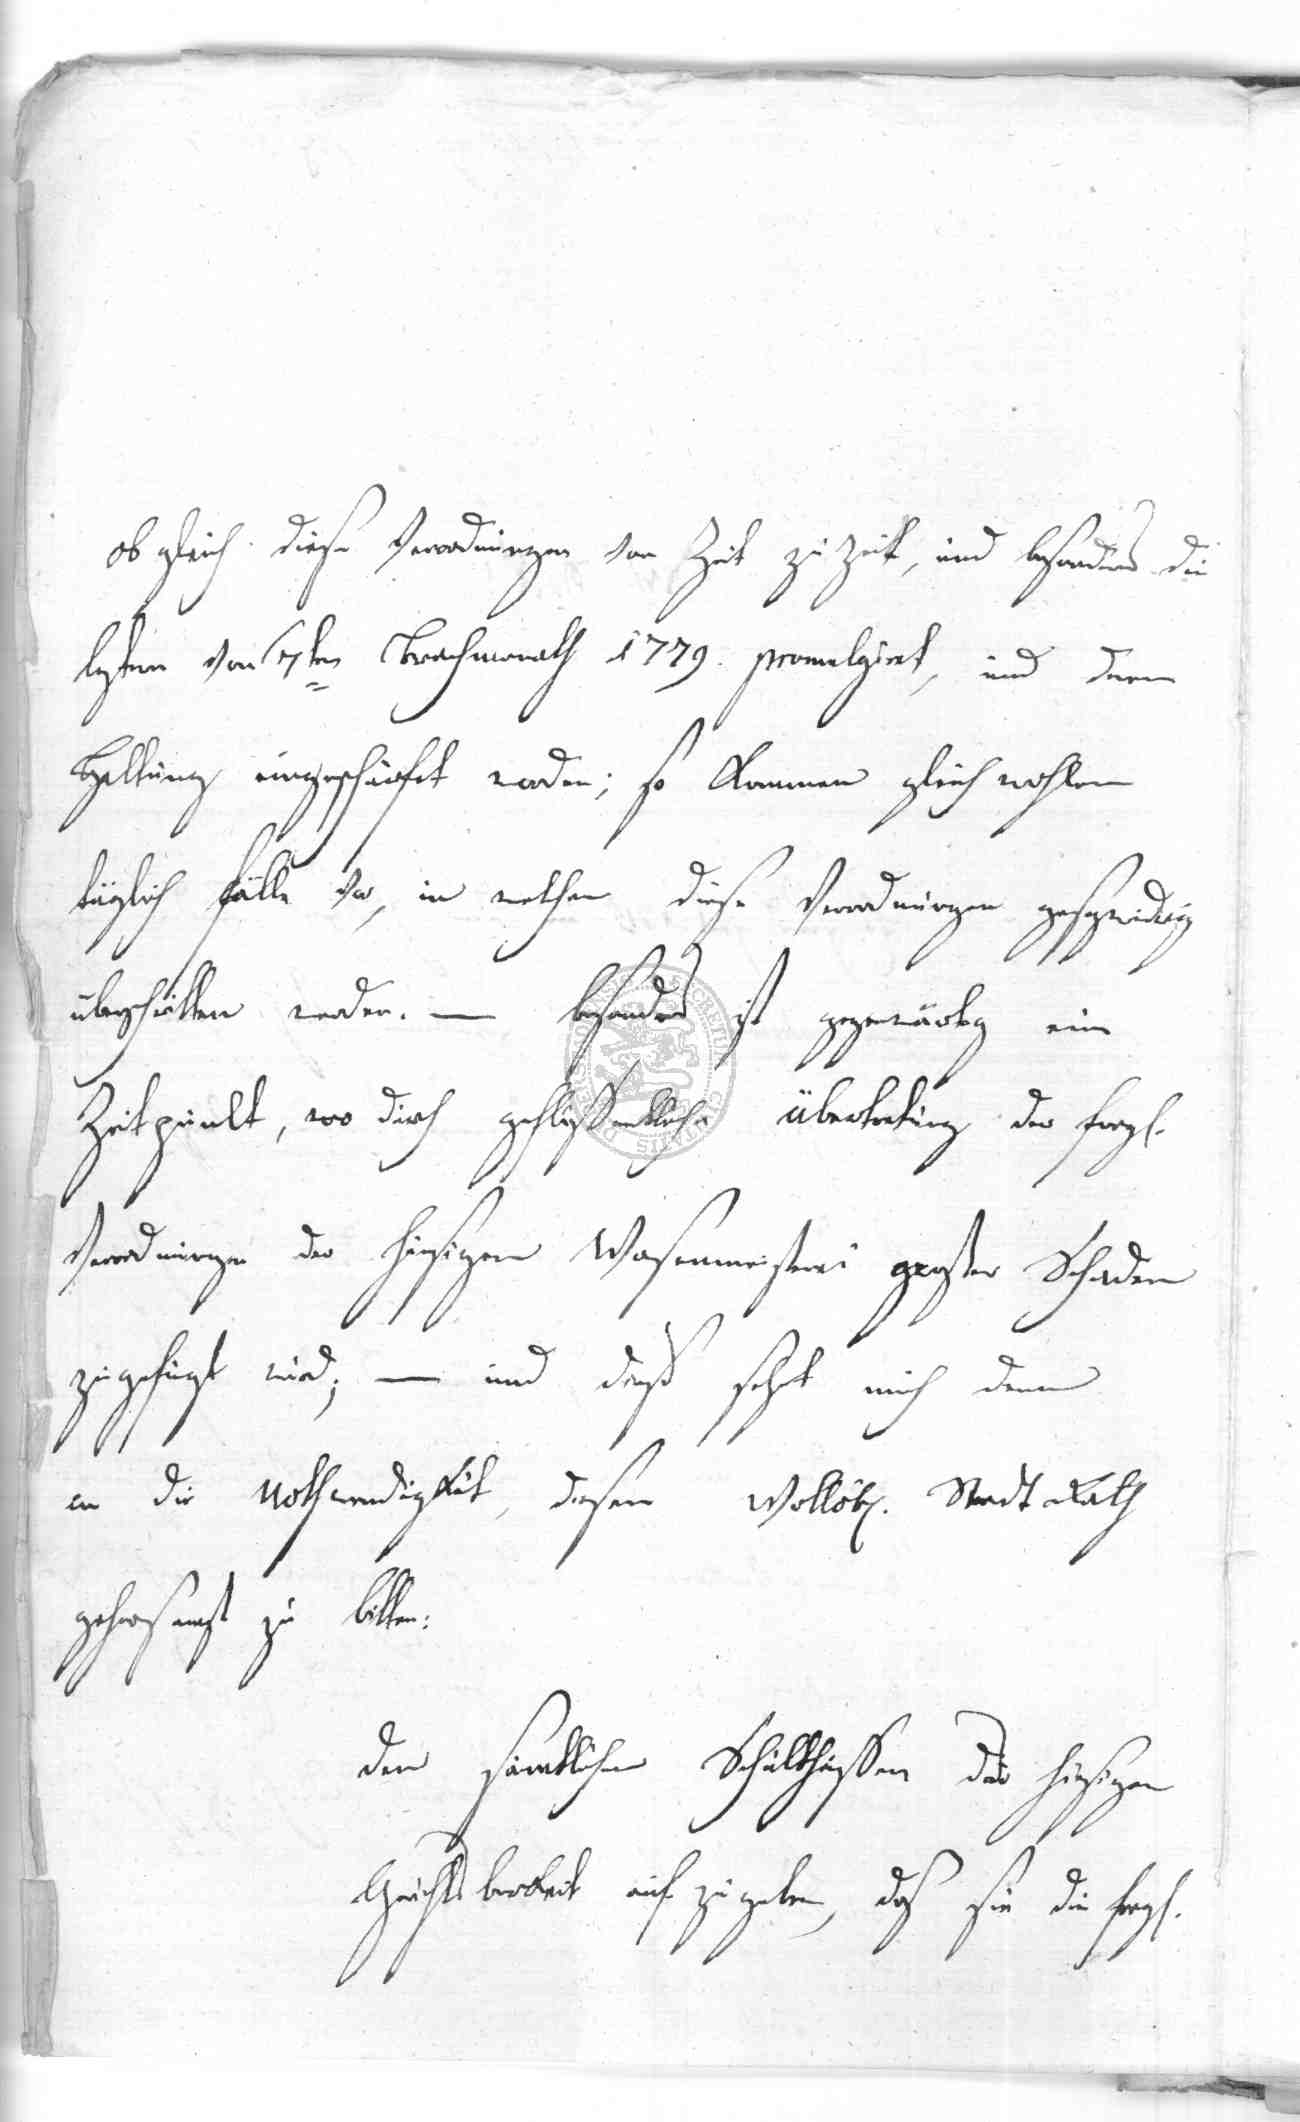 ob gleich diese Verordnungen von Zeit zu Zeit, und besonders die
letztern von 17ten Brachmonath 1779. promulgirt, und deren
Haltung eingeschärfet worden; so kommen gleich wohlen
täglich Fälle vor, in welchen diese Verordnungen gesetzwidrig
überschritten werden. — besonders ist gegenwärtig ein
Zeitpunkt, wo durch geflissentliche Übertretung der
Verordnungen der hiesigen Wasenmeisterei großer Schaden
zugefügt wird; — und dieß setzt mich denn
in die Nothwendigkeit, diesen Wohllöbl. Stadt Rath
gehorsamst zu bitten:
den sämtlichen Schultheissen der hiesigen
Gerichtsbarkeit auf zu geben, daß sie die